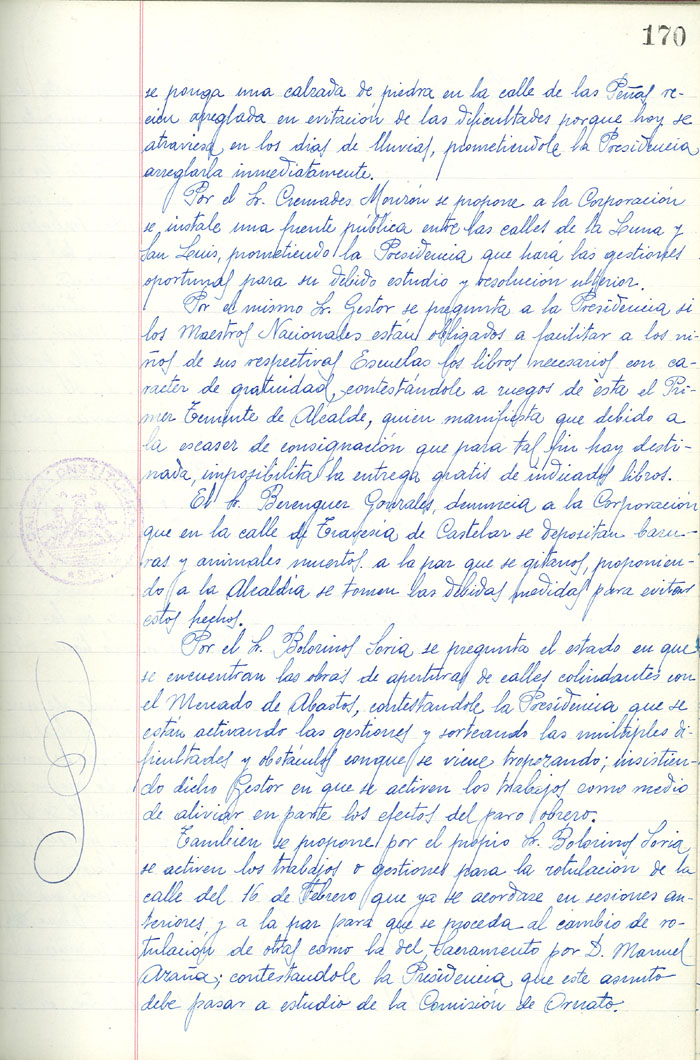 170
se ponga una calzada de piedra en la calle de las Peñas re-
cien arreglada en evitación de las dificultades porque hoy se
atraviesa en los dias de lluvias, prometiendole la Presidencia
arreglarla inmediatamente.
Por el Sr. Cremades Monzón se propone a la Corporación
se instale una fuente pública entre las calles de la Luna y
San Luis, prometiendo la Presidencia que hará las gestiones
oportunas para su debido estudio y resolución ulterior.
Por el mismo Sr. Gestor se pregunta a la Presidencia si
los Maestros Nacionales están obligados a facilitar a los ni-
ños de sus respectivas Escuelas los libros necesarios con ca-
racter de gratuidad, contestándole a ruegos de ésta el Pri-
mer Teniente de Alcalde, quien manifiesta que debido a
la escasez de consignación que para tal fin hay desti-
nada, imposibilita la entrega gratis de indicados libros.
El Sr. Berenguer Gonzales, denuncia a la Corporación
que en la calle de Travesía de Castelar se depositan basu-
ras y animales muertos a la par que se gitanos, proponien-
do a la Alcaldía se tomen las debidas medidas para evitar
estos hechos.
Por el Sr. Bolorinos Soria se pregunta el estado en que
se encuentran las obras de aperturas de calles colindantes con
el Mercado de Abastos, contestandole la Presidencia que se
están activando las gestiones y sorteando las multiples di-
ficultades y obstáculos conque se viene tropezando; insistien-
do dicho Gestor en que se activen los trabajos como medio
de aliviar en parte los efectos del paro obrero.
Tambien se propone por el propio Sr. Bolorinos Soria
se activen los trabajos o gestiones para la rotulación de la
calle del 16 de Febrero que ya se acordase en sesiones an-
teriores y a la par para que se proceda al cambio de ro-
tulación de otras como la del Sacramento por D. Manuel
Azaña; contestandole la Presidencia que este asunto
debe pasar a estudio de la Comisión de Ornato.